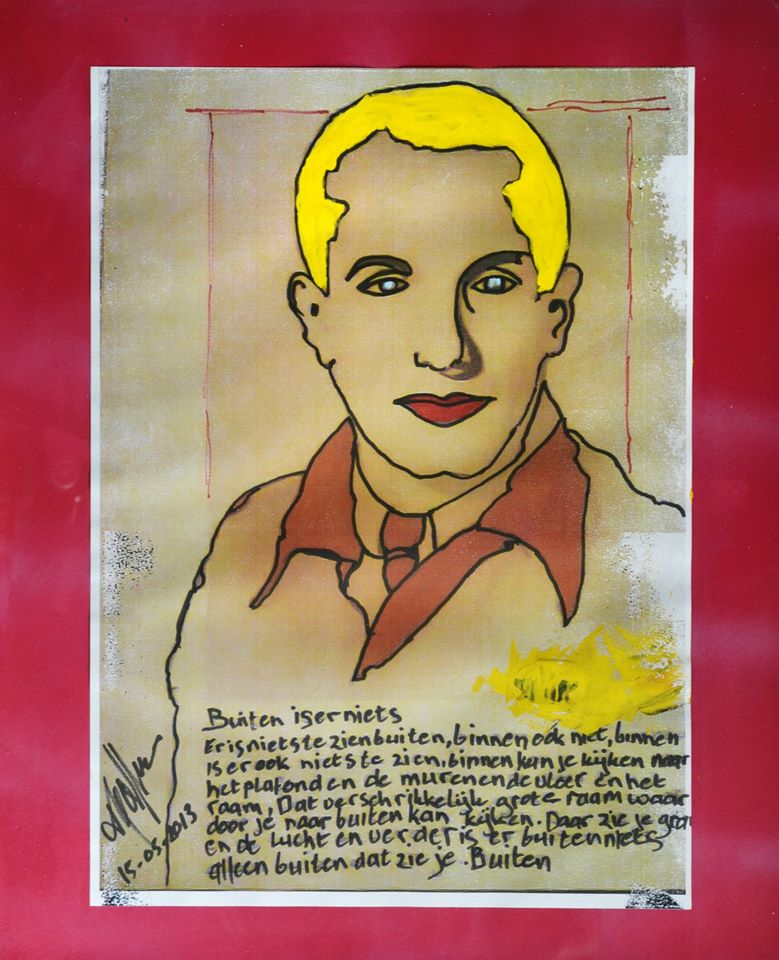 Buiten is er niets
Er is niets te zien buiten, binnen ook niet, binnen
is er ook niets te zien, binnen kan je kijken naar
het plafond en de muren en de vloer en het
raam, Dat verschrikkelijk grote raam waar
door je naar buiten kan kijken. Daar zie je gras
en de lucht en verder is er buiten niets
alleen buiten dat zie je. Buiten
15-05-2013